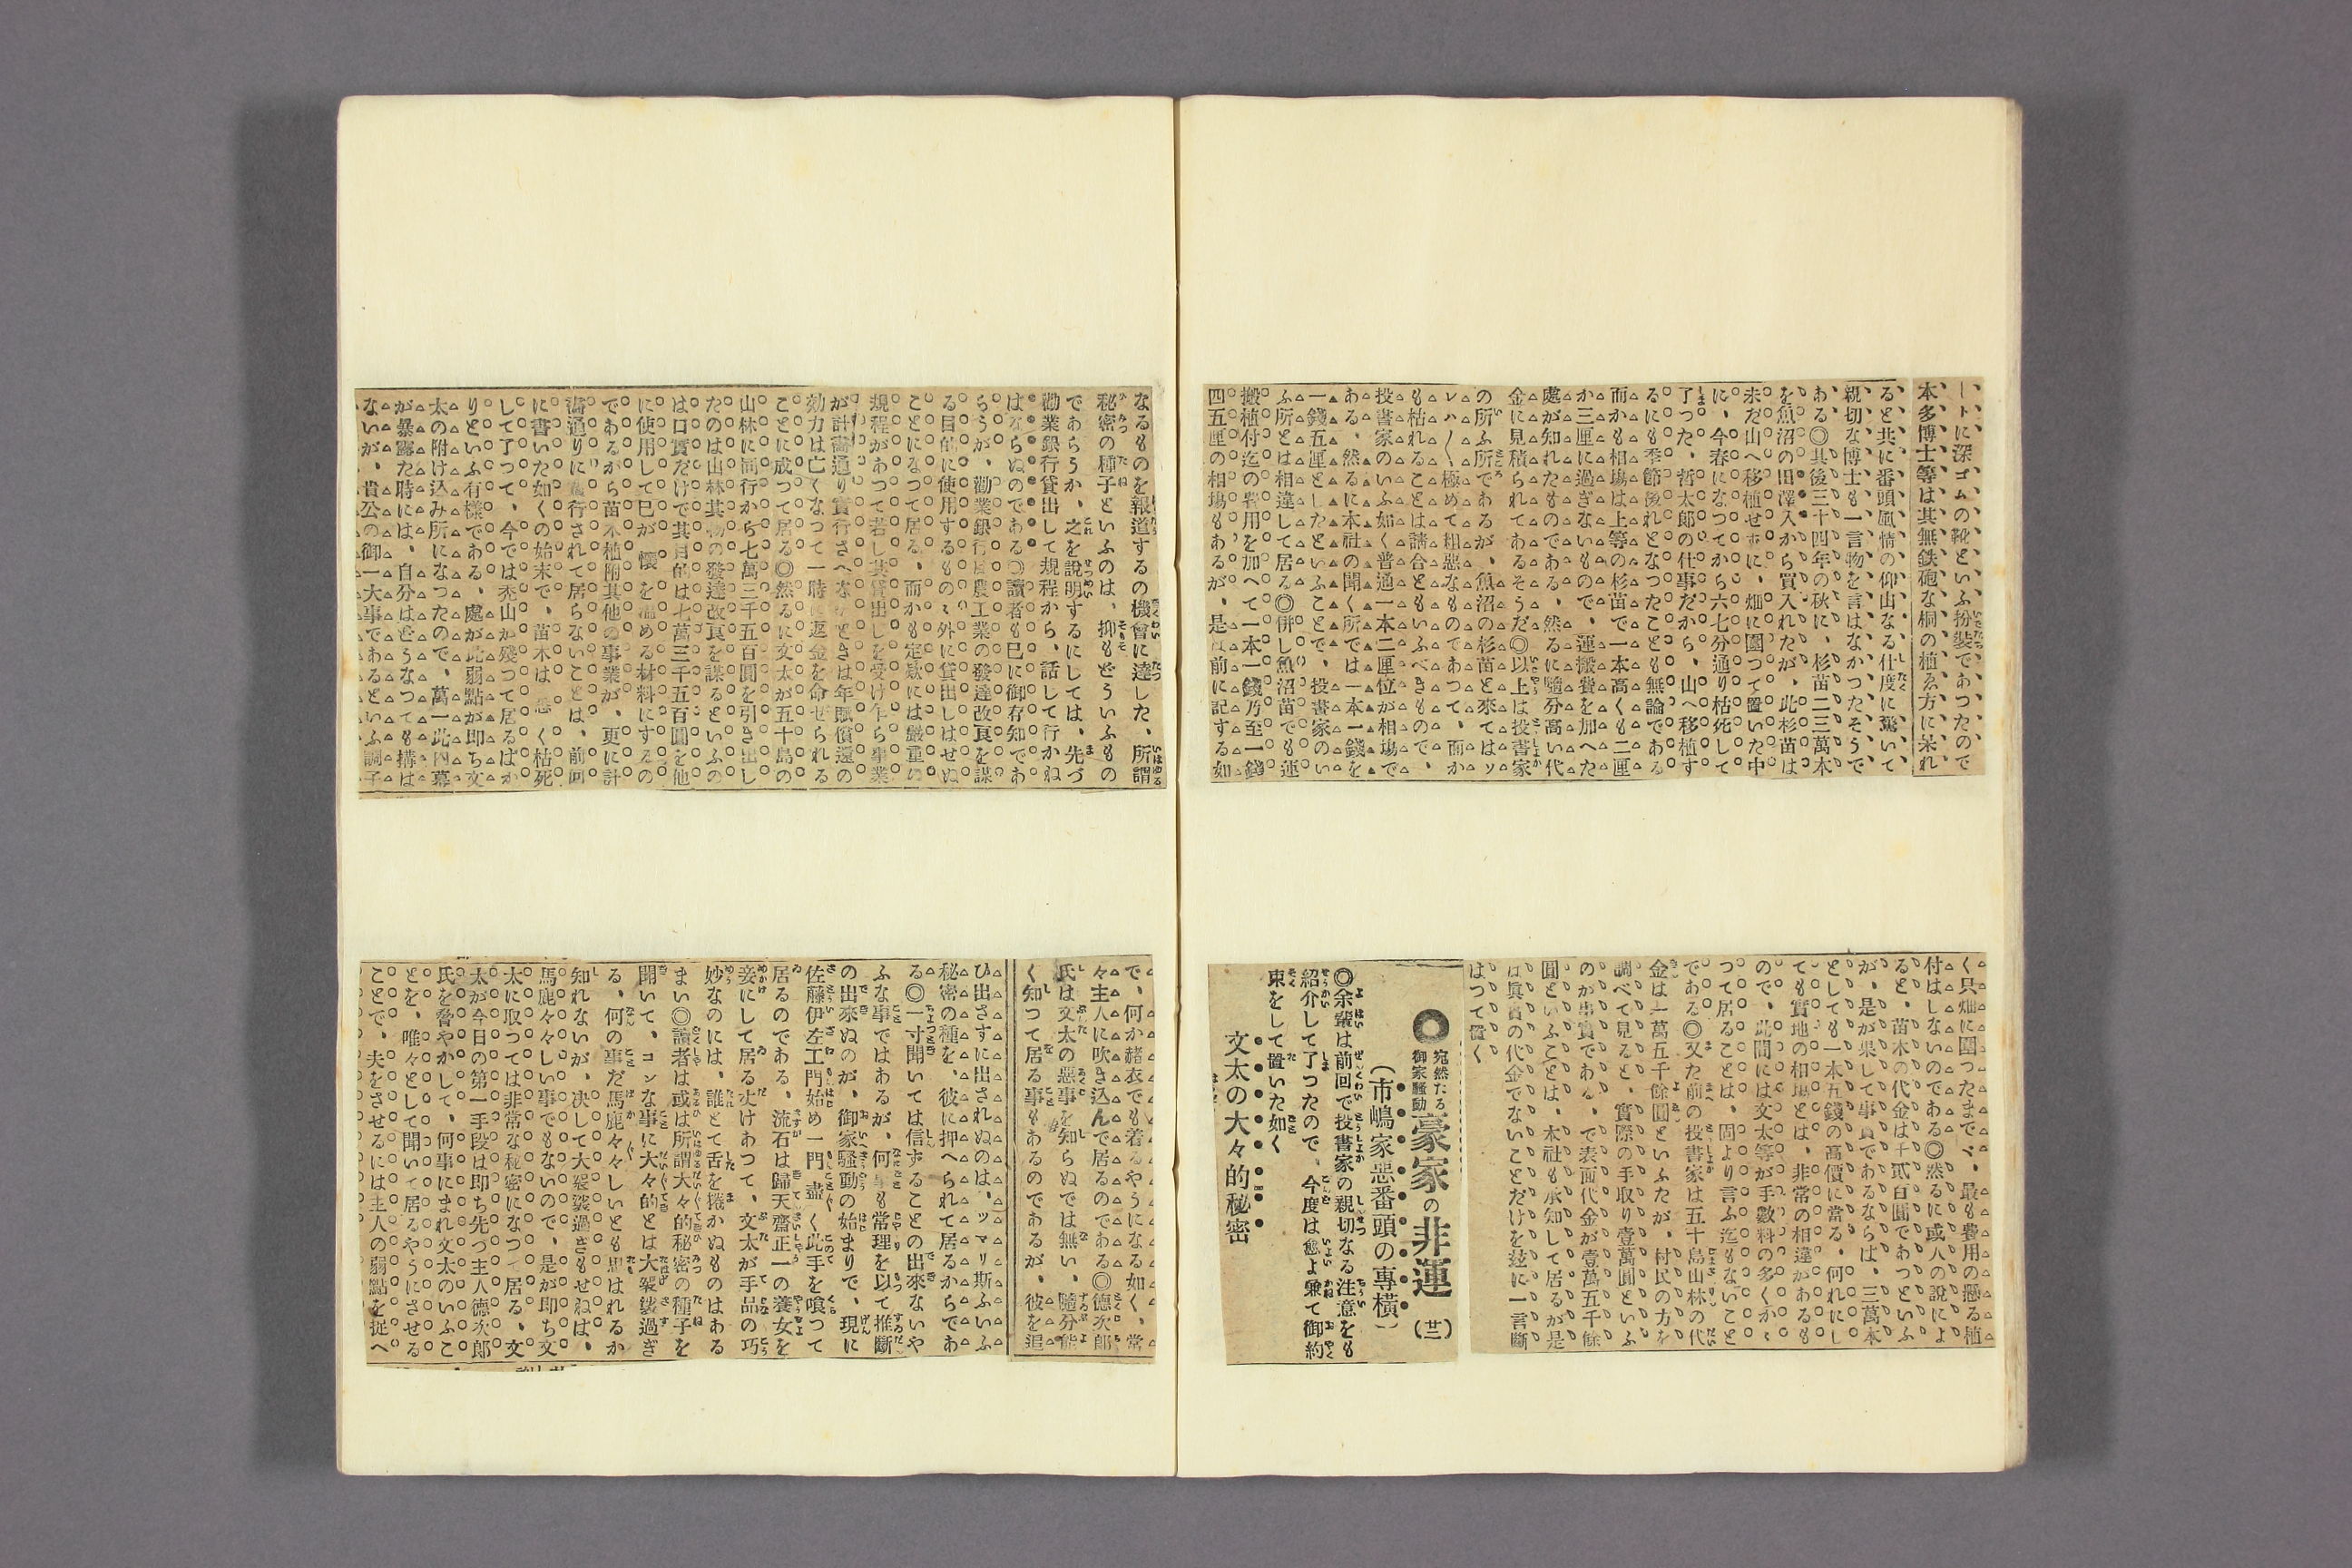 ートに深ゴムの靴といふ扮装であつたので
本多博士等は其無鉄砲な桐の植ゑ方に呆れ
ると共に番頭風情の仰山なる仕度に驚いて
親切な博士も一言物を言はなかつたそうで
ある◎其後三十四年の秋に、杉苗二三萬本
を魚沼の田澤入から買入れたが、此杉苗は
未だ山へ移植せずに、畑に圍つて置いた中
に、今春になつてから六七分通り枯死して
了つた、哲太郎の仕事だから、山へ移植す
るにも季節後れとなつたことも無論である
而かも相場は上等の杉苗で一本高くも二厘
か三厘に過ぎないもので、運搬費を加へた
處が知れたものである、然るに隨分高い代
金に見積られてあるそうだ◎以上は投書家
の所ふ所であるが、魚沼の杉苗と來てはッ
レハ〱極めて粗惡なものであつて、而か
も枯れることは請合ともいふべきもので、
投書家のいふ如く普通一本二厘位が相場で
ある、然るに本社の聞く所では一本一錢を
一錢五厘としたといふことで、投書家のい
ふ所とは相違して居る◎併し魚沼苗でも運
搬植付迄の費用を加へて一本一錢乃至一錢
四五厘の相場もあるが、是は前に記する如
く只畑に圍つたまでゞ、最も費用の懸る植
付はしないのである◎然るに或人の説によ
ると、苗木の代金は千貳百圓であつといふ
が、是が果して事實であるならば、三萬本
としても一本五錢の高價に當る、何れにし
ても實地の相場とは、非常の相違があるも
ので、此間には文太等が手數料の多くかゝ
つて居ることは、固より言ふ迄もないこと
である◎又た前の投書家は五十島山林の代
金は一萬五千餘圓といふたが、村民の方を
調べて見ると、實際の手取り壹萬圓といふ
のが事實である、で表面代金が壹萬五千餘
圓といふことは、本社も承知して居るが是
は眞實の代金でないことだけを玆に一言斷
はつて置く
◎宛然たる御家騷動豪家の非運(廿三)
(市嶋家惡番頭の專横)
◎余輩は前回で投書家の親切なる注意をも
紹介して了つたので、今度は愈よ兼て御約
束をして置いた如く
文太の大々的秘密
なるものを報道するの機會に達した、所謂
秘密の種子といふのは、抑もどういふもの
であらうか、之を説明するにしては、先づ
勸業銀行貸出して規程から、話して行かね
はならぬのである◎讀者も已に御存知であ
らうが、勸業銀行は農工業の發達改良を謀
る目的に使用するものゝ外に貸出しはせぬ
ことになつて居る、而かも定欵には嚴重の
規程があつて若し其貸出しを受け乍ら事業
が計畵通り實行さへなきときは年賦償還の
効力は亡くなつて一時に返金を命せられる
ことに成つて居る◎然るに文太が五十島の
山林に同行から七萬三千五百圓を引き出し
たのは山林其物の發達改良を謀るといふの
は口實だけで其目的は七萬三千五百圓を他
に使用して已が懷を温める材料にするの
であるから苗木植附其他の事業が、更に計
畵通りに實行されて居らないことは、前回
に書いた如くの始末で、苗木は悉く枯死
して了つて、今では禿山が殘つて居るばか
りといふ有樣である、處が此弱點が即ち文
太の附け込み所になつたので、萬一此內幕
が暴露た時には、自分はどうなつても構は
ないが、貴公の御一大事であるといふ調子
で、何か赭衣でも着るやうになる如く、常
々主人に吹き込んで居るのである◎德次郎
氏は文太の惡事を知らぬでは無い、隨分能
く知つて居る事もあるのであるが、彼を追
ひ出さすに出されぬのは、ツマリ斯ふいふ
秘密の種を、彼に押へられて居るからであ
る◎一寸聞いては信ずることの出來ないや
ふな事ではあるが、何事も常理を以て推斷
の出來ぬのが、御家騷動の始まりで、現に
佐藤伊左工門始め一門盡く此手を喰つて
居るのである、流石は歸天齋正一の養女を
妾にして居る丈けあつて、文太が手品の巧
妙なのには、誰とて舌を捲かぬものはある
まい◎讀者は或は所謂大々的秘密の種子を
聞いて、コンな事に大々的とは大袈裟過ぎ
る、何の事だ馬鹿々々しいとも思はれるか
知れないが、决して大袈裟過ぎもせねは、
馬鹿々々しい事でもないので、是が即ち文
太に取つては非常な秘密になつて居る、文
太が今日の第一手段は即ち先づ主人德次郎
氏を脅やかして、何事にまれ文太のいふこ
とを、唯々として聞いて居るやうにさせる
ことで、夫をさせるには主人の弱點を捉へ